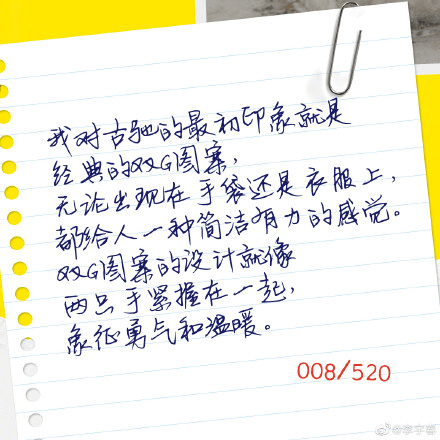 我对古驰的最初印象就是
经典的双G图案，
无论出现在手袋还是衣服上，
都给人一种简洁有力的感觉。
双G图案的设计就像
两只手紧握在一起，
象征勇气和温暖。
008/520
@李宇春